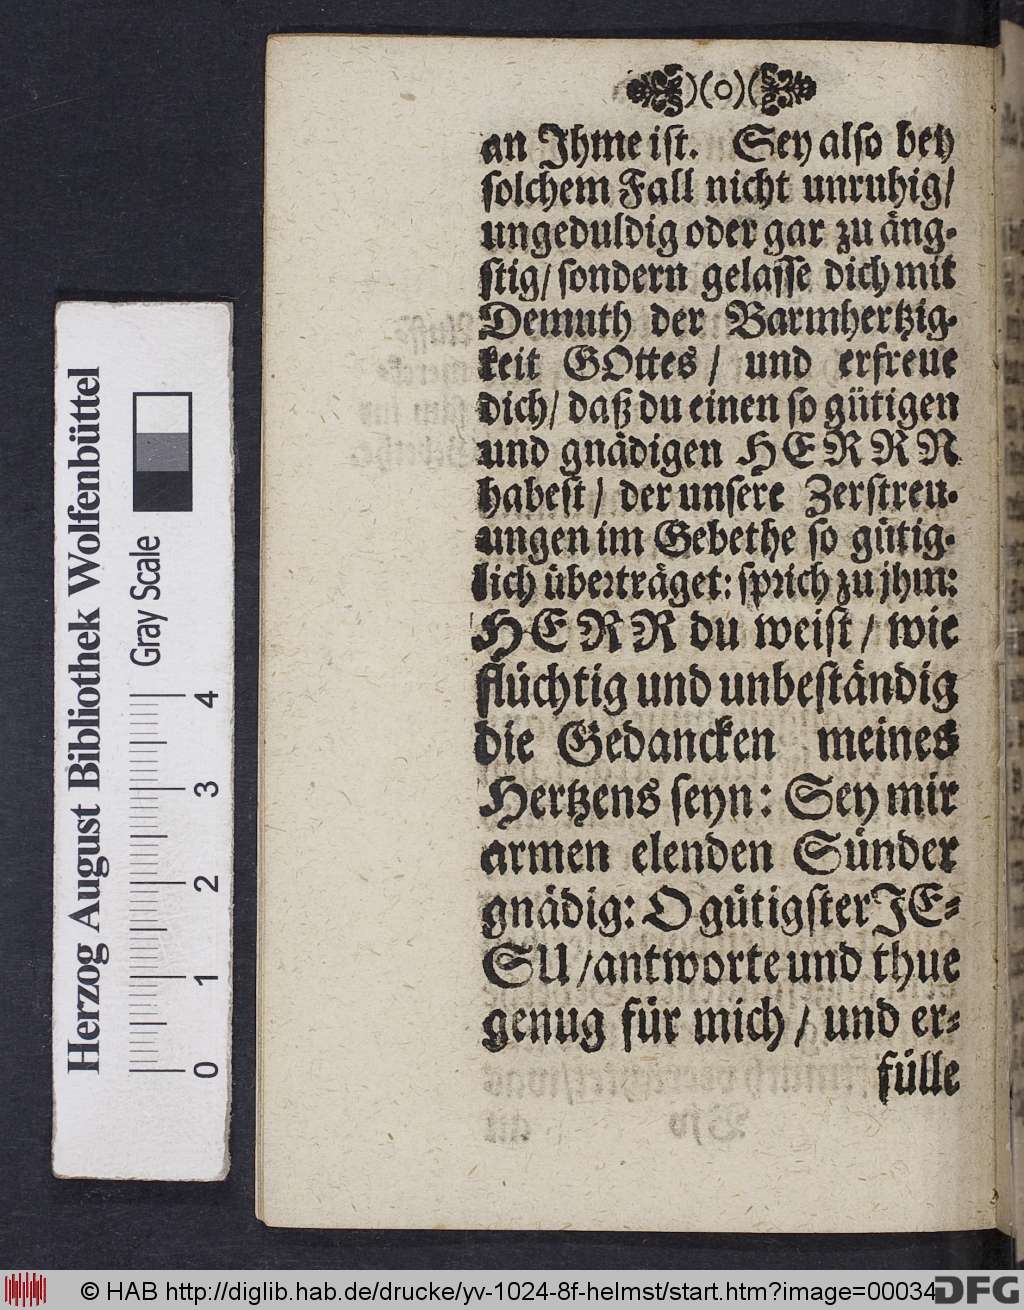 )(o)(
an Ihme ist. Sey also bey
solchem Fall nicht unruhig/
ungeduldig oder gar zu äng-
stig/ sondern gelasse dich mit
Demuth der Barmhertzig-
keit GOttes/ und erfreue
dich/ daß du einen so gütigen
und gnädigen HERRN
habest/ der unsere Zerstreu-
ungen im Gebethe so gütig-
lich überträget: sprich zu jhm:
HERR du weist/ wie
flüchtig und unbeständig
die Gedancken meines
Hertzens seyn: Sey mir
armen elenden Sünder
gnädig: O gütigster JE-
SU/ antworte und thue
genug für mich/ und er-
fülle
Herzog August Bibliothek Wolfenbüttel
Gray Scale
0 1 2 3 4
© HAB http://diglib.hab.de/drucke/yv-1024-8f-helmst/start.htm?image=00034
DFG